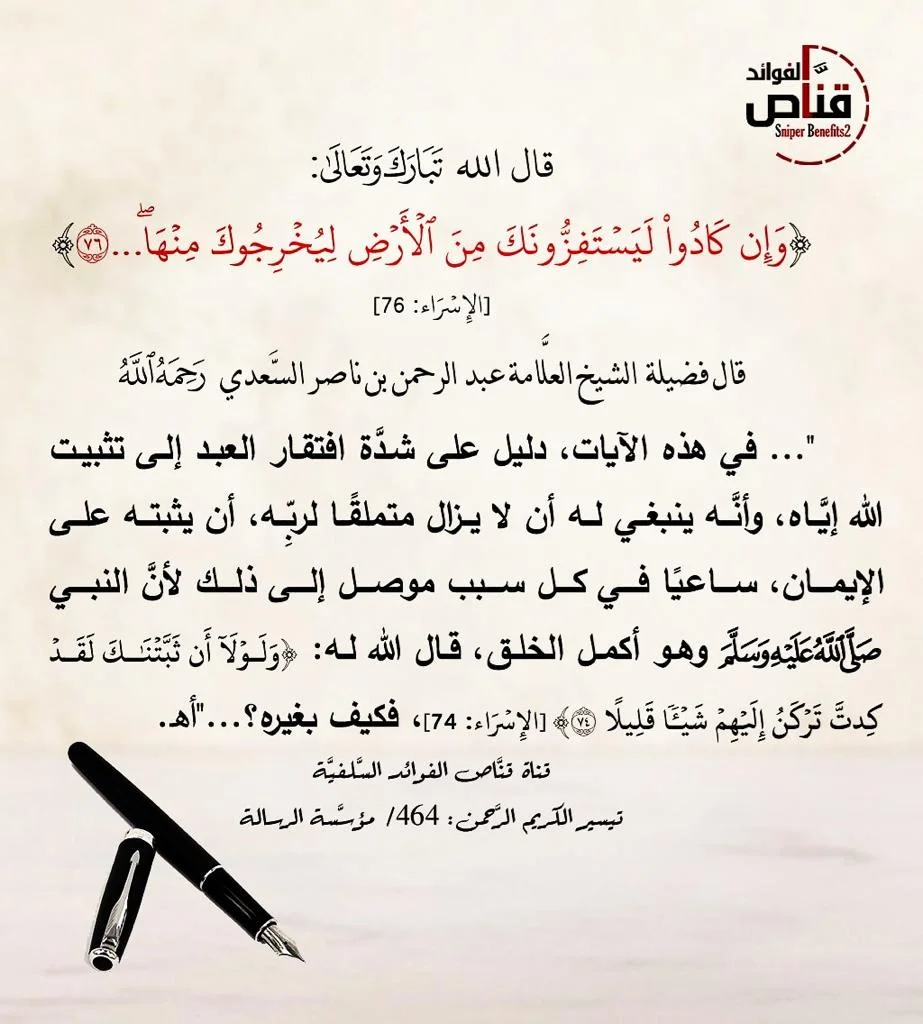 قناص الفوائد
Sniper Benefits2
قال الله تَبَارَكَ وَتَعَالَىٰ:
﴿وَإِن كَادُواْ لَيَسۡتَفِزُّونَكَ مِنَ ٱلۡأَرۡضِ لِيُخۡرِجُوكَ مِنۡهَاۖ...٧٦﴾
[الإِسۡرَاء: 76]
قال فضيلة الشيخ العلاَّمة عبد الرحمن بن ناصر السَّعدي رَحِمَهُ ٱللَّهُ
"... في هذه الآيات، دليل على شدَّة افتقار العبد إلى تثبيت
الله إيَّاه، وأنَّه ينبغي له أن لا يزال متملقًا لربِّه، أن يثبته على
الإيمان، ساعيًا في كل سبب موصل إلى ذلك لأنَّ النبي
صَلَّى ٱللَّهُ عَلَيْهِ وَسَلَّمَ وهو أكمل الخلق، قال الله له: ﴿وَلَوۡلَآ أَن ثَبَّتۡنَٰكَ لَقَدۡ
كِدتَّ تَرۡكَنُ إِلَيۡهِمۡ شَيۡـٔٗا قَلِيلًا ٧٤﴾ [الإِسۡرَاء: 74]، فكيف بغيره؟..."أهـ.
قناة قنَّاص الفوائد السَّلفيَّة
تيسير الكريم الرَّحمن: 464/ مؤسَّسة الرسالة